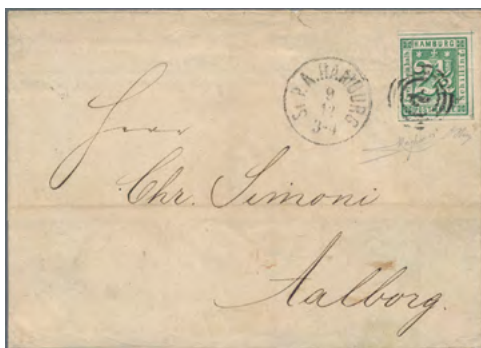 HAMBURG
St.P.A.HAMBURG
9
12
3-4
Herr
Chr. Simoni
Aalborg.